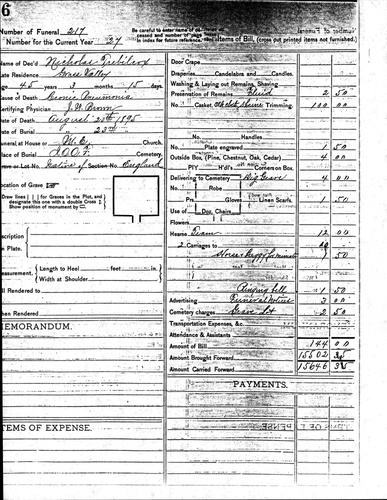 6
Number of Funeral 217
Be careful to enter name of
passed and number of page
in index for future reference.
Number for the Current Year 27
Items of Bill, (cross out printed items not furnished.)
Name of Dec'd Nicholas
Late Residence Grass Valley
Age 45 years 3 months 15 days
Cause of Death Pneumonia
Certifying Physician J. Brown
Date of Death August 20th 1895
Date of Burial 23rd
Funeral at House or M.E. Church.
Place of Burial I.O.O.F. Cemetery.
Grave or Lot No. Native of Section England
Location of Grave
Draw lines for Graves in the Plot, and
designate this one with a double Cross
Show position of monument by
Description
on Plate.
Measurement, Length to Heel feet in.
Width at Shoulder
Bill Rendered to
When Rendered
MEMORANDUM.
ITEMS OF EXPENSE.
Door Crape
Draperies Candelabra and Candles.
Washing & Laying out Remains, Shaving
Preservation of Remains Fluid 2 50
No. Casket, Trimming. 100 00
No. Handles
Plate engraved 1 50
Outside Box, (Pine, Chestnut, Oak, Cedar) 4 00
P'l'y H'd'l's Gathered on Box.
Delivering to Cemetery Dig Grave 4 00
No. Robe
Prs. Gloves Linen Scarfs. 1 50
Use of Doz. Chairs
Flowers
Hearse Team 12 00
2 Carriages to 10
Horse & Buggy for minister 1 50
Ringing bell 1 50
Advertising Funeral Notice 3 00
Cemetery charges Grave Lot 2 50
Transportation Expenses, &c.
Attendance & Assistants
Amount of Bill 144 00
Amount Brought Forward 15502 35
Amount Carried Forward 15646 35
PAYMENTS.